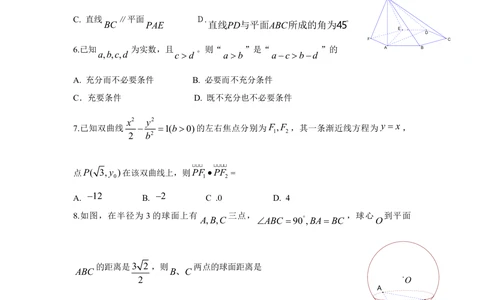 C. 直线 BC ∥平面 PAE D. 直线PD与平面ABC所成的角为45°
6.已知 a,b,c,d 为实数，且 c > d 。则“ a > b ”是“ a − c > b − d ”的
A. 充分而不必要条件 B. 必要而不充分条件
C．充要条件 D. 既不充分也不必要条件
7.已知双曲线 x²/2 − y²/b² = 1(b > 0) 的左右焦点分别为 F₁, F₂ ，其一条渐近线方程为 y = x ，
点 P( 3, y₀) 在该双曲线上，则 PF₁ • PF₂ =
A. −12 B. −2 C .0 D. 4
8.如图，在半径为 3 的球面上有 A, B, C 三点， ∠ABC = 90°, BA = BC ，球心 O 到平面
ABC 的距离是 3 2 / 2 ，则 B、C 两点的球面距离是
P
F
E
D
A
B
C
°O
A